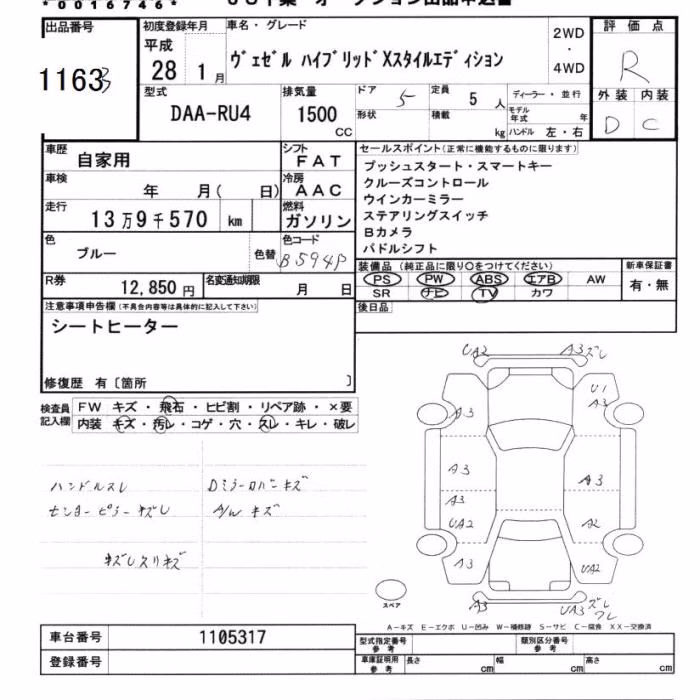 *0016746*
出品番号
1163
初度登録年月
平成
28 1月
車名・グレード
ヴェゼル ハイブリッドXスタイルエディション
2WD
・
4WD
評価点
R
外装 内装
D C
型式
DAA-RU4
排気量
1500
CC
ドア
5
形状
定員
5 人
積載
kg
ディーラー・並行
モデル年式 年
ハンドル 左・右
車歴
自家用
シフト
FAT
車検
年 月( 日)
冷房
AAC
走行
13万9千570 km
燃料
ガソリン
色
ブルー
色替
色コード
B594P
R券
12,850円
名変通知期限
月 日
セールスポイント(正常に機能するものに限ります)
プッシュスタート・スマートキー
クルーズコントロール
ウインカーミラー
ステアリングスイッチ
Bカメラ
パドルシフト
装備品(純正品に限り○をつけてください)
PS PW ABS エアB AW
SR ナビ TV カワ
新車保証書
有・無
後日品
注意事項申告欄(不具合内容等は具体的に記入して下さい)
シートヒーター
修復歴 有〔箇所 〕
検査員記入欄
FW キズ・飛石・ヒビ割・リペア跡・×要
内装 キズ・汚レ・コゲ・穴・スレ・キレ・破レ
ハンドルスレ
Dミラーロバーキズ
センターピラーキズレ
A/W キズ
キズレスリキズ
UA2
A3ズレ
A3
U1
A3
A3
A3
A3
UA2
A2
A3
UA2
A3
UA3ズレ
ワレ
スペア
A－キズ E－エクボ U－凹み W－補修跡 S－サビ C－腐食 XX－交換済
車台番号
1105317
登録番号
型式指定番号
参考
類別区分番号
参考
車庫証明用
参考
長さ cm
幅 cm
高さ cm